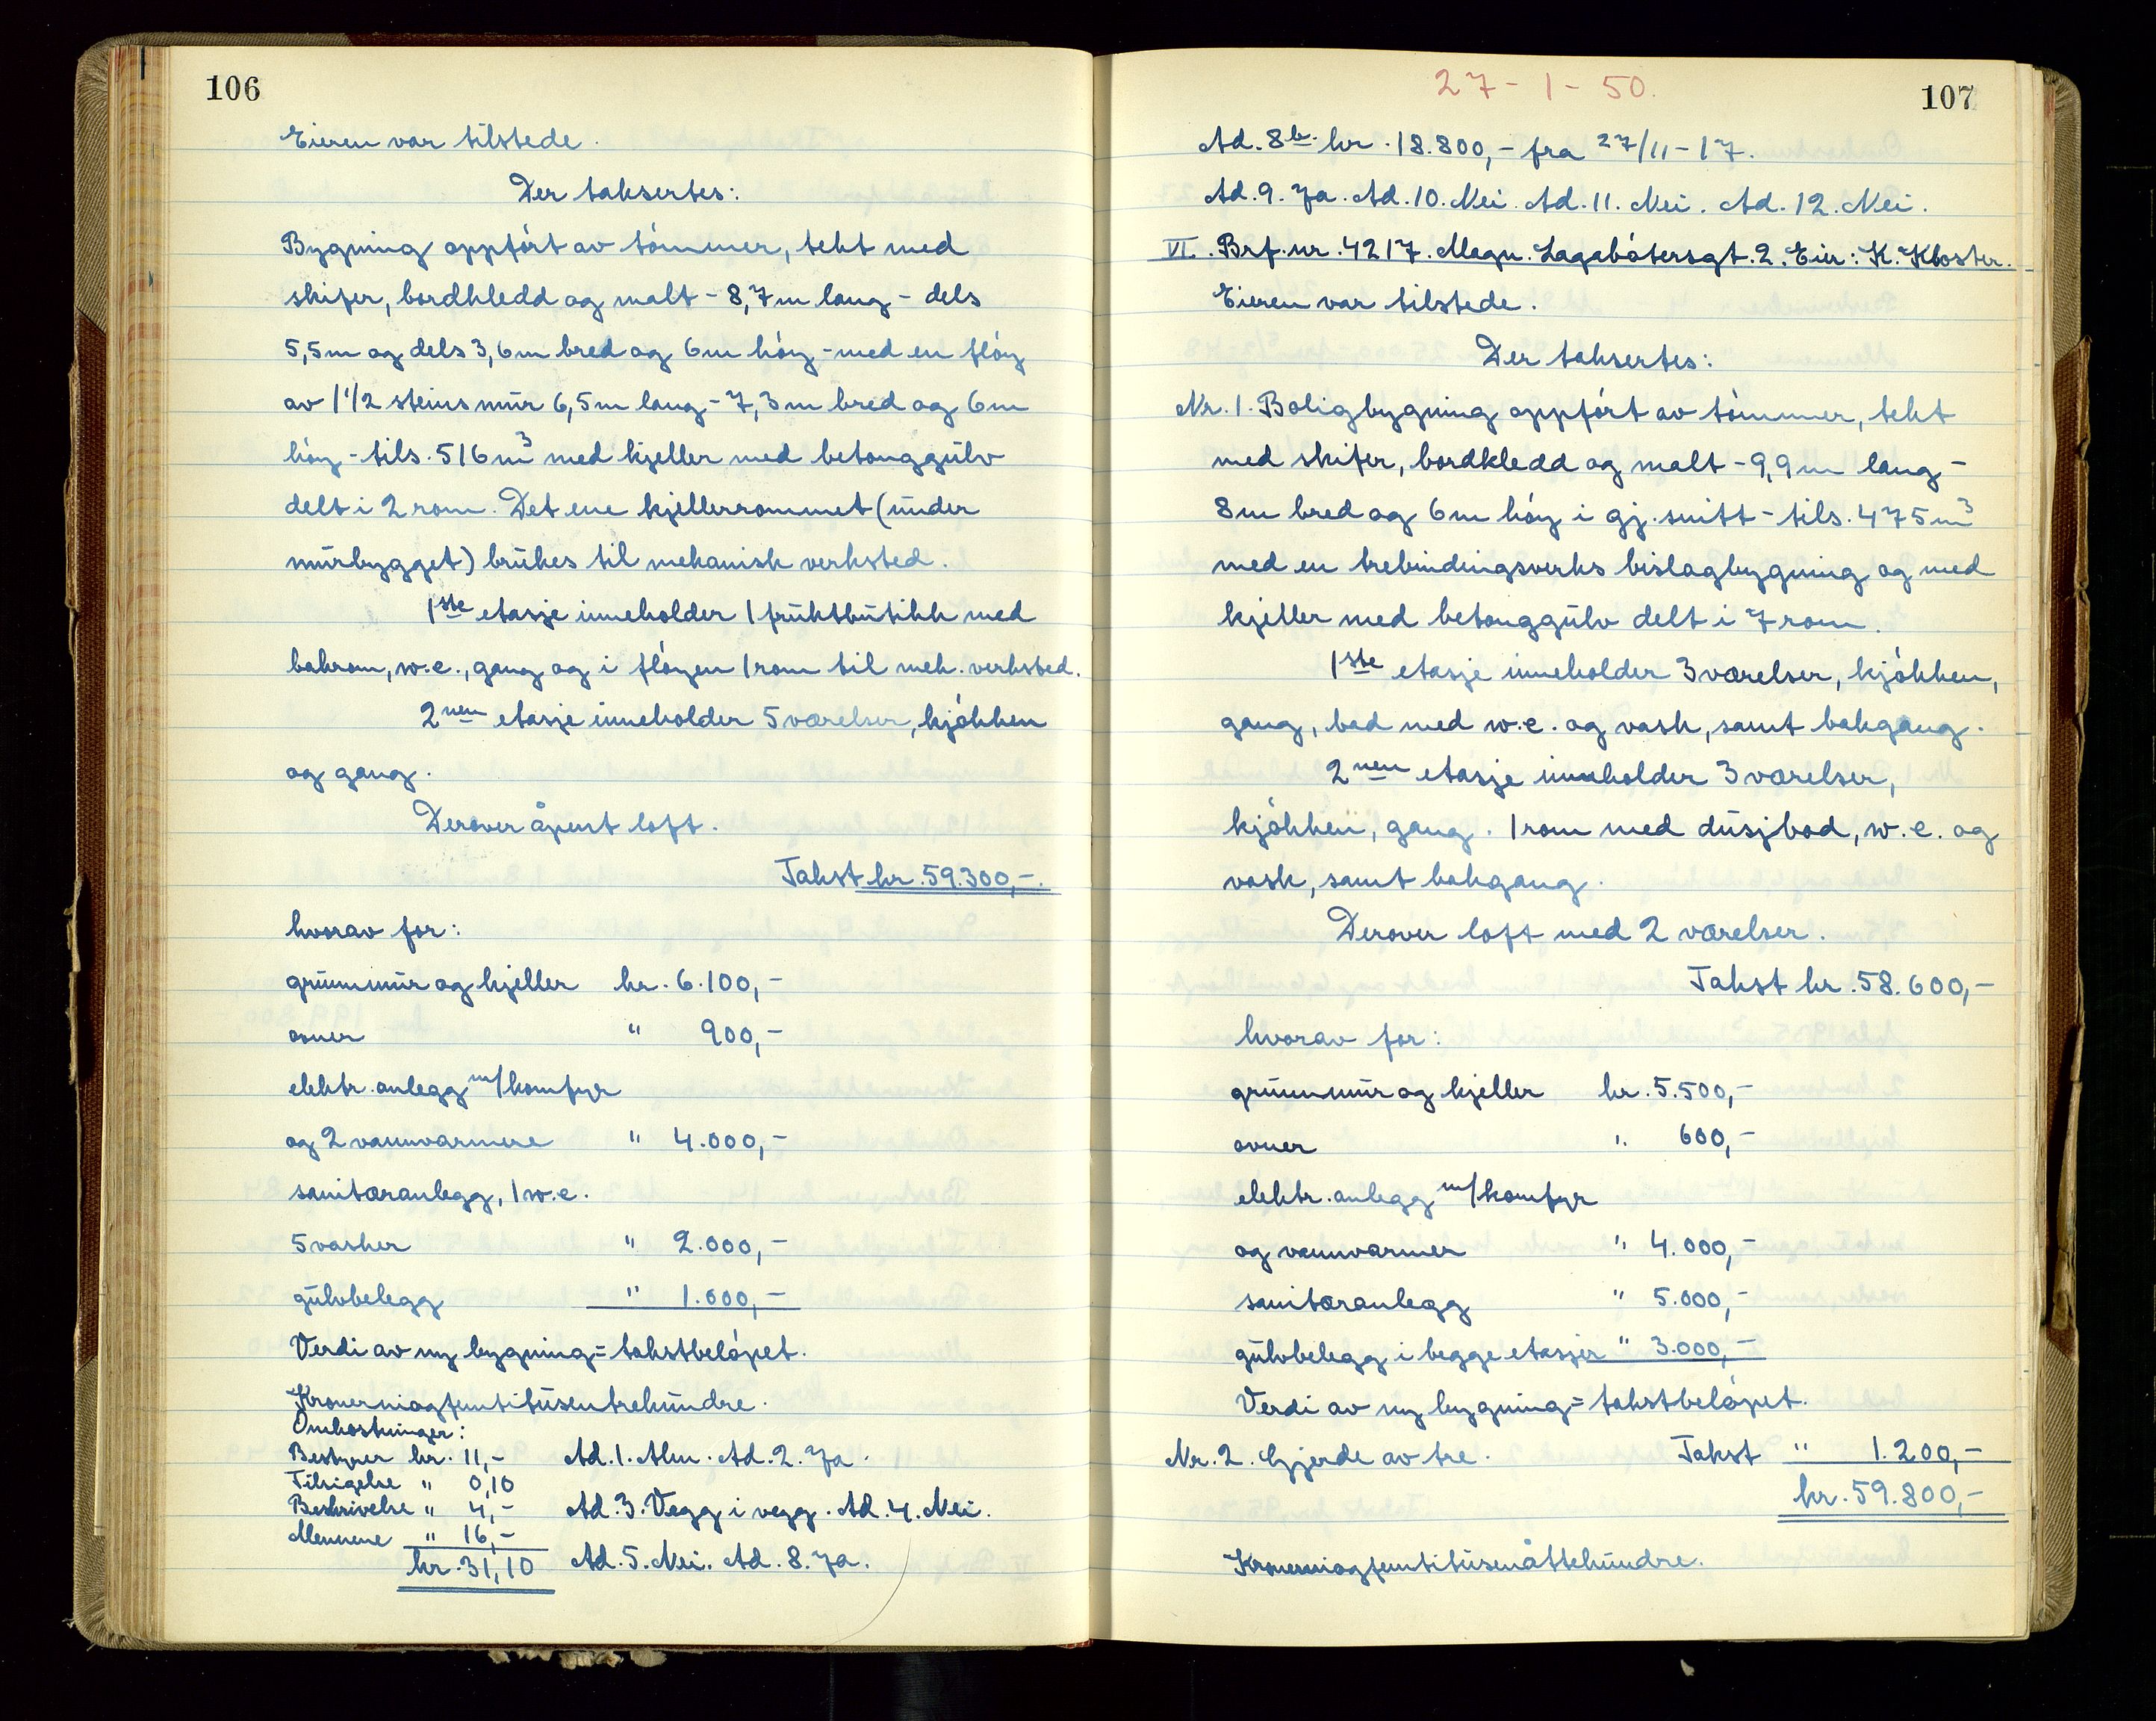 106
Eieren var tilstede.
Der taksertes:
Bygning oppført av tømmer, tekt med
skifer, bordkledd og malt - 8,7m lang - dels
5,5m og dels 3,6m bred og 6m høy - med en fløy
av 1 1/2 steins mur 6,5m lang - 7,3m bred og 6m
høy - tils. 516m³ med kjeller med betonggulv
delt i 2 rom. Det ene kjellerrommet (under
murbygget) brukes til mekanisk verksted.
1ste etasje inneholder 1 fruktbutikk med
bakrom, w.c., gang og i fløyen 1 rom til mek. verksted.
2nen etasje inneholder 5 værelser, kjøkken
og gang.
Derover åpent loft.
Takst kr. 59.300,-.
hvorav for:
grunnmur og kjeller kr. 6.100,-
ovner " 900,-
elektr. anlegg m/komfyr
og 2 vannvarmere " 4.000,-
sanitæranlegg, 1 w.c.
5 vasker " 2.000,-
gulvbelegg " 1.000,-
Verdi av ny bygning = takstbeløpet.
Kronerniogfemtitusentrehundre.
Omkostninger:
Bestyrer kr. 11,- Ad. 1. Alm. Ad. 2. Ja.
Tilsigelse " 0,10
Beskrivelse " 4,- Ad. 3. Vegg i vegg. Ad. 4. Nei.
Mennene " 16,-
kr. 31,10 Ad. 5. Nei. Ad. 8. Ja.
27 - 1 - 50.
107
Ad. 8b. kr. 18.800,- fra 27/11-17.
Ad. 9. Ja. Ad. 10. Nei. Ad. 11. Nei. Ad. 12. Nei.
VI. Brf. nr. 4217. Magn. Lagabøtersgt. 2. Eier: K. Kloster.
Eieren var tilstede.
Der taksertes:
Nr. 1. Boligbygning oppført av tømmer, tekt
med skifer, bordkledd og malt - 9,9m lang -
8m bred og 6m høy i gj. snitt - tils. 475m³
med en trebindingsverks bislagbygning og med
kjeller med betonggulv delt i 7 rom.
1ste etasje inneholder 3 værelser, kjøkken,
gang, bad med w.c. og vask, samt bakgang.
2nen etasje inneholder 3 værelser,
kjøkken, gang. 1 rom med dusjbad, w.c. og
vask, samt bakgang.
Derover loft med 2 værelser.
Takst kr. 58.600,-
hvorav for:
grunnmur og kjeller kr. 5.500,-
ovner " 600,-
elektr. anlegg m/komfyr
og vannvarmer " 4.000,-
sanitæranlegg " 5.000,-
gulvbelegg i begge etasjer " 3.000,-
Verdi av ny bygning = takstbeløpet.
Nr. 2. Gjerde av tre. Takst " 1.200,-
kr. 59.800,-
Kronerniogfemtitusenåttehundre.